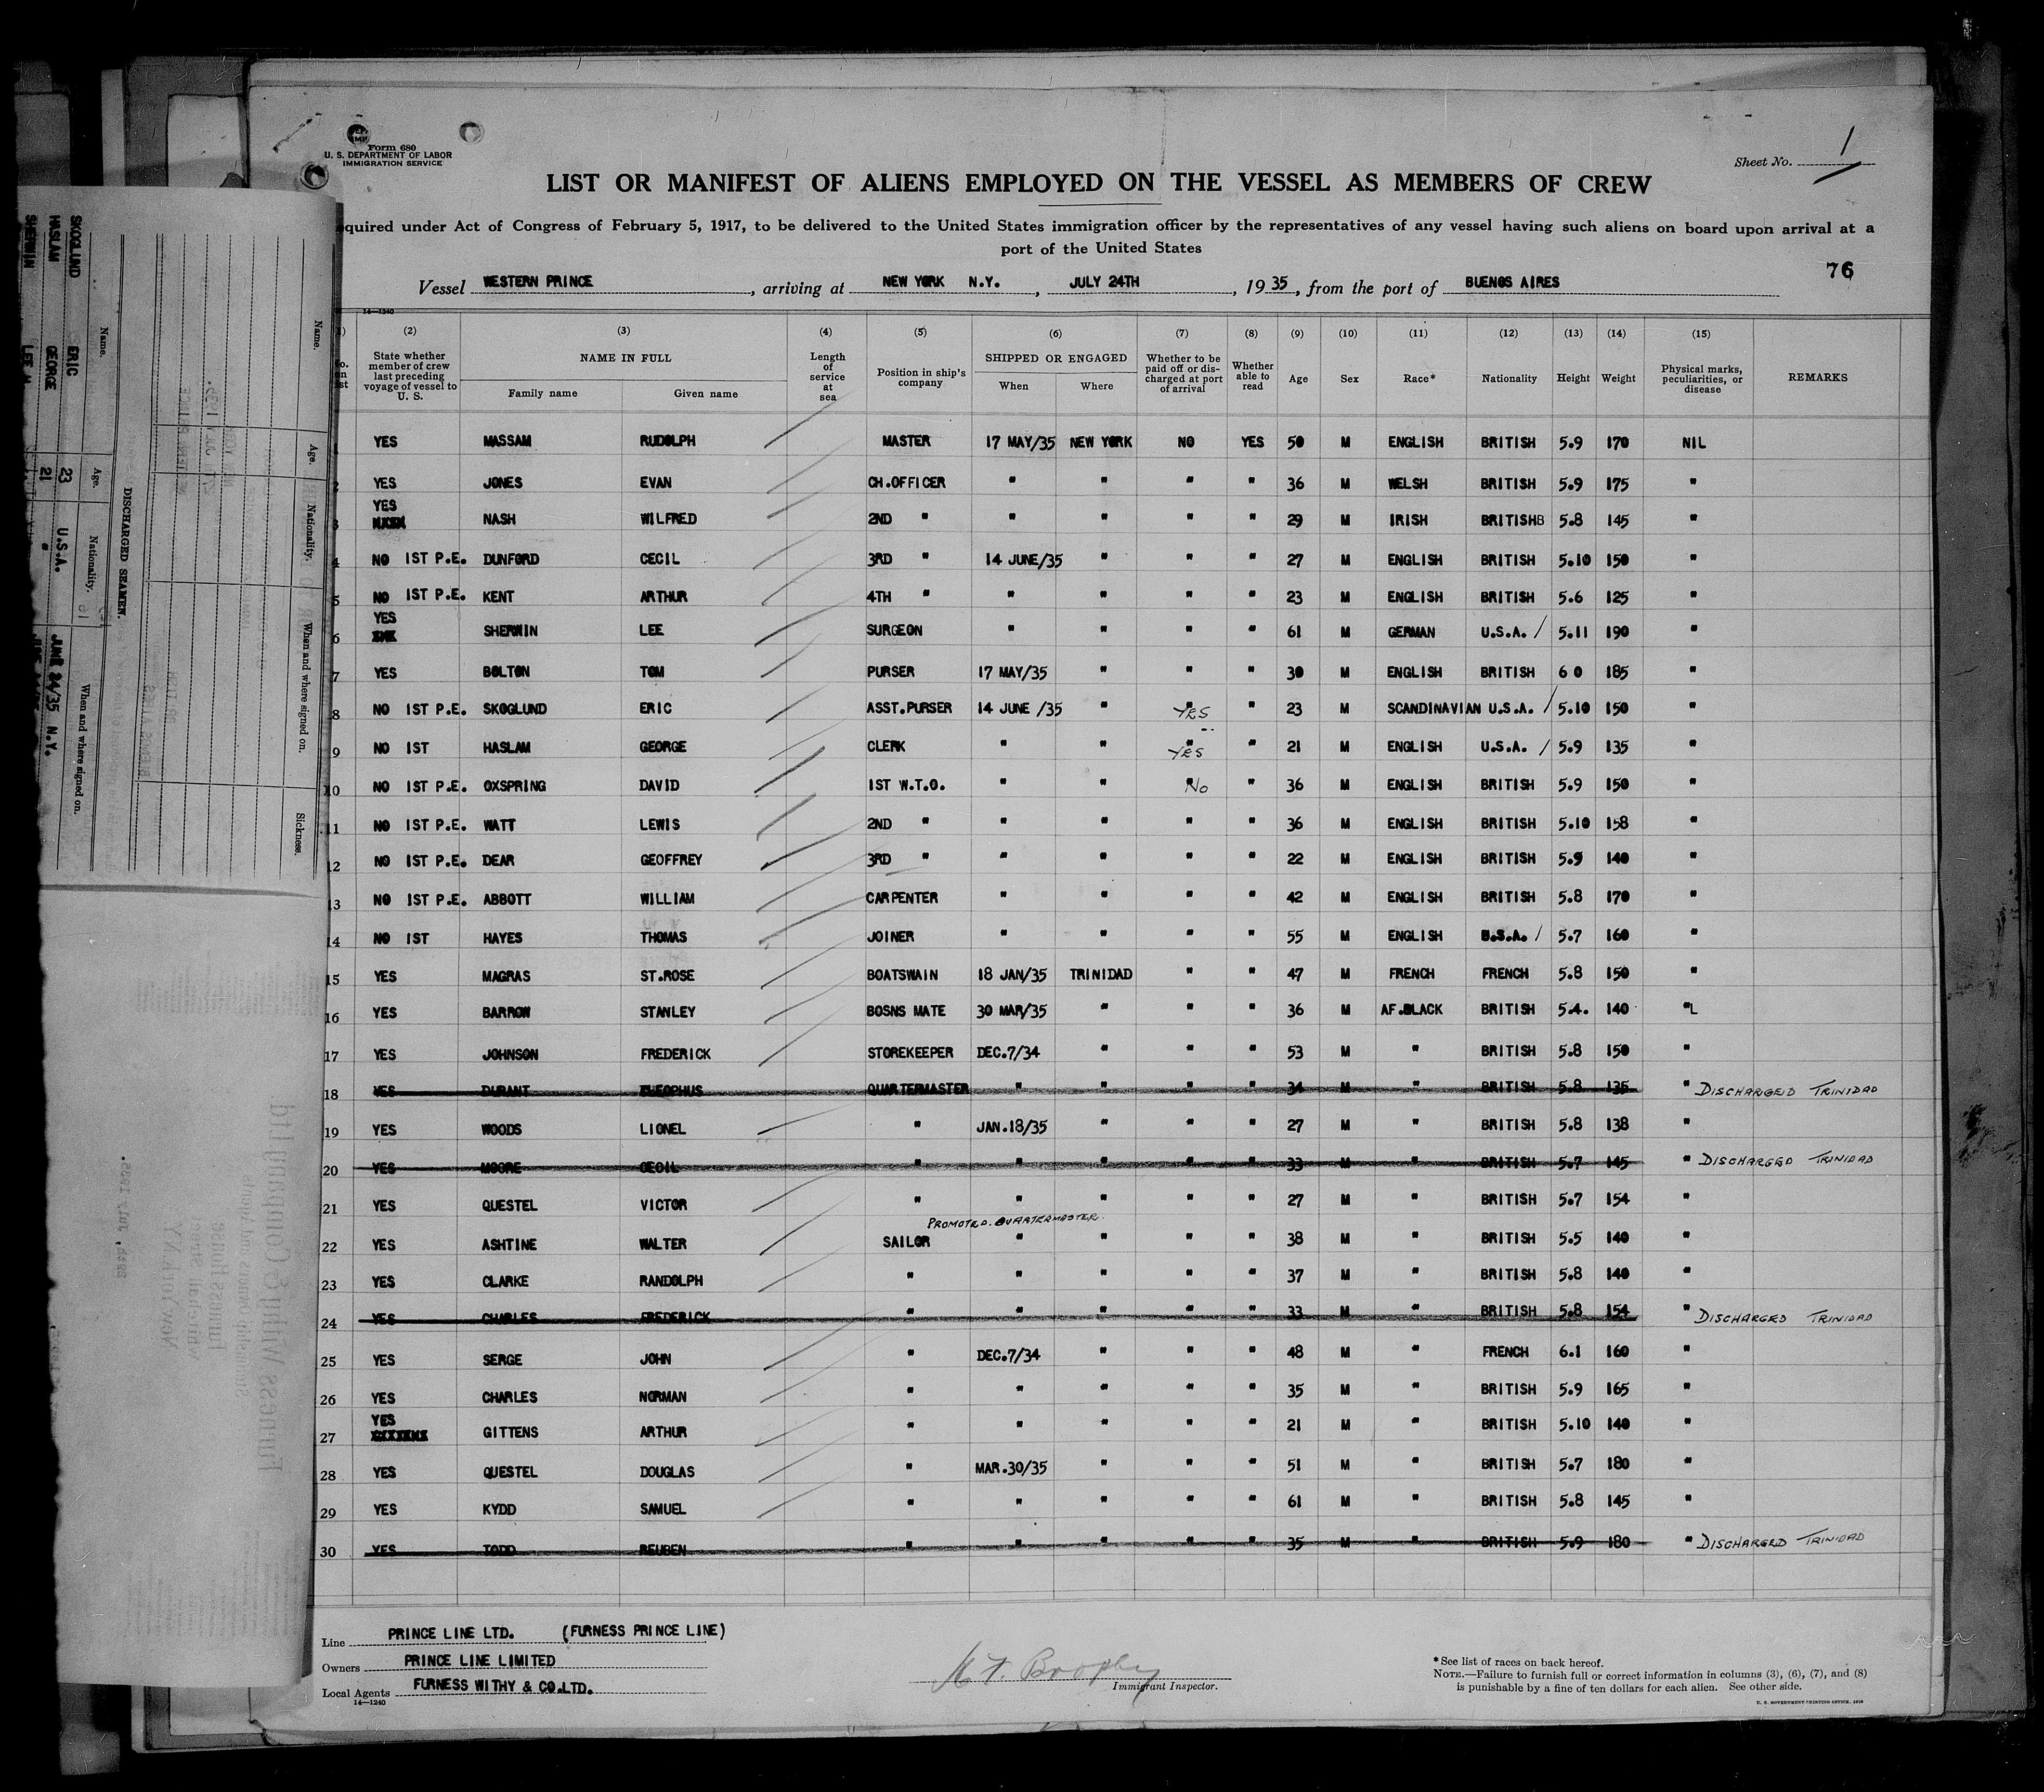 Form 680
U. S. DEPARTMENT OF LABOR
IMMIGRATION SERVICE
Sheet No. 1
LIST OR MANIFEST OF ALIENS EMPLOYED ON THE VESSEL AS MEMBERS OF CREW
quired under Act of Congress of February 5, 1917, to be delivered to the United States immigration officer by the representatives of any vessel having such aliens on board upon arrival at a
port of the United States
76
Vessel WESTERN PRINCE, arriving at NEW YORK N.Y., JULY 24TH, 1935, from the port of BUENOS AIRES
14—1240
(2) (3) (4) (5) (6) (7) (8) (9) (10) (11) (12) (13) (14) (15)
State whether member of crew last preceding voyage of vessel to U. S. NAME IN FULL Family name Given name Length of service at sea Position in ship's company SHIPPED OR ENGAGED When Where Whether to be paid off or discharged at port of arrival Whether able to read Age Sex Race* Nationality Height Weight Physical marks, peculiarities, or disease REMARKS
1 YES MASSAM RUDOLPH MASTER 17 MAY/35 NEW YORK NO YES 50 M ENGLISH BRITISH 5.9 170 NIL
2 YES JONES EVAN CH.OFFICER " " " " 36 M WELSH BRITISH 5.9 175 "
3 YES NASH WILFRED 2ND " " " " " 29 M IRISH BRITISHB 5.8 145 "
4 NO 1ST P.E. DUNFORD CECIL 3RD " 14 JUNE/35 " " " 27 M ENGLISH BRITISH 5.10 150 "
5 NO 1ST P.E. KENT ARTHUR 4TH " " " " " 23 M ENGLISH BRITISH 5.6 125 "
6 YES SHERWIN LEE SURGEON " " " " 61 M GERMAN U.S.A. / 5.11 190 "
7 YES BOLTON TOM PURSER 17 MAY/35 " " " 30 M ENGLISH BRITISH 6 0 185 "
8 NO 1ST P.E. SKOGLUND ERIC ASST.PURSER 14 JUNE /35 " YES " 23 M SCANDINAVIAN U.S.A. / 5.10 150 "
9 NO 1ST HASLAM GEORGE CLERK " " YES " 21 M ENGLISH U.S.A. / 5.9 135 "
10 NO 1ST P.E. OXSPRING DAVID 1ST W.T.O. " " No " 36 M ENGLISH BRITISH 5.9 150 "
11 NO 1ST P.E. WATT LEWIS 2ND " " " " " 36 M ENGLISH BRITISH 5.10 158 "
12 NO 1ST P.E. DEAR GEOFFREY 3RD " " " " " 22 M ENGLISH BRITISH 5.9 140 "
13 NO 1ST P.E. ABBOTT WILLIAM CARPENTER " " " " 42 M ENGLISH BRITISH 5.8 170 "
14 NO 1ST HAYES THOMAS JOINER " " " " 55 M ENGLISH U.S.A. / 5.7 160 "
15 YES MAGRAS ST.ROSE BOATSWAIN 18 JAN/35 TRINIDAD " " 47 M FRENCH FRENCH 5.8 150 "
16 YES BARROW STANLEY BOSNS MATE 30 MAR/35 " " " 36 M AF.BLACK BRITISH 5.4. 140 "L
17 YES JOHNSON FREDERICK STOREKEEPER DEC.7/34 " " " 53 M " BRITISH 5.8 150 "
18 YES DURANT THEOPHUS QUARTERMASTER " " " " 34 M " BRITISH 5.8 135 " DISCHARGED TRINIDAD
19 YES WOODS LIONEL " JAN.18/35 " " " 27 M " BRITISH 5.8 138 "
20 YES MOORE CECIL " " " " " 33 M " BRITISH 5.7 145 " DISCHARGED TRINIDAD
21 YES QUESTEL VICTOR " " " " " 27 M " BRITISH 5.7 154 "
PROMOTED. QUARTERMASTER.
22 YES ASHTINE WALTER SAILOR " " " " 38 M " BRITISH 5.5 140 "
23 YES CLARKE RANDOLPH " " " " " 37 M " BRITISH 5.8 140 "
24 YES CHARLES FREDERICK " " " " " 33 M " BRITISH 5.8 154 " DISCHARGED TRINIDAD
25 YES SERGE JOHN " DEC.7/34 " " " 48 M " FRENCH 6.1 160 "
26 YES CHARLES NORMAN " " " " " 35 M " BRITISH 5.9 165 "
27 YES GITTENS ARTHUR " " " " " 21 M " BRITISH 5.10 140 "
28 YES QUESTEL DOUGLAS " MAR.30/35 " " " 51 M " BRITISH 5.7 180 "
29 YES KYDD SAMUEL " " " " " 61 M " BRITISH 5.8 145 "
30 YES TODD REUBEN " " " " " 35 M " BRITISH 5.9 180 " DISCHARGED TRINIDAD
Line PRINCE LINE LTD. (FURNESS PRINCE LINE)
Owners PRINCE LINE LIMITED
Local Agents FURNESS WITHY & CO.LTD.
14—1240
Immigrant Inspector.
*See list of races on back hereof.
NOTE.—Failure to furnish full or correct information in columns (3), (6), (7), and (8)
is punishable by a fine of ten dollars for each alien. See other side.
U. S. GOVERNMENT PRINTING OFFICE
Name. Age. Nationality. When and where signed on. Sickness.
DISCHARGED SEAMEN.
Name. Age. Nationality. When and where signed on.
SKOGLUND ERIC 23 U.S.A. JUNE 24/35 N.Y.
HASLAM GEORGE 21 "
SHERWIN LEE
Furness Withy & Company Ltd.
Steamship Owners and Agents
Furness House
Whitehall Street
New York, N.Y.